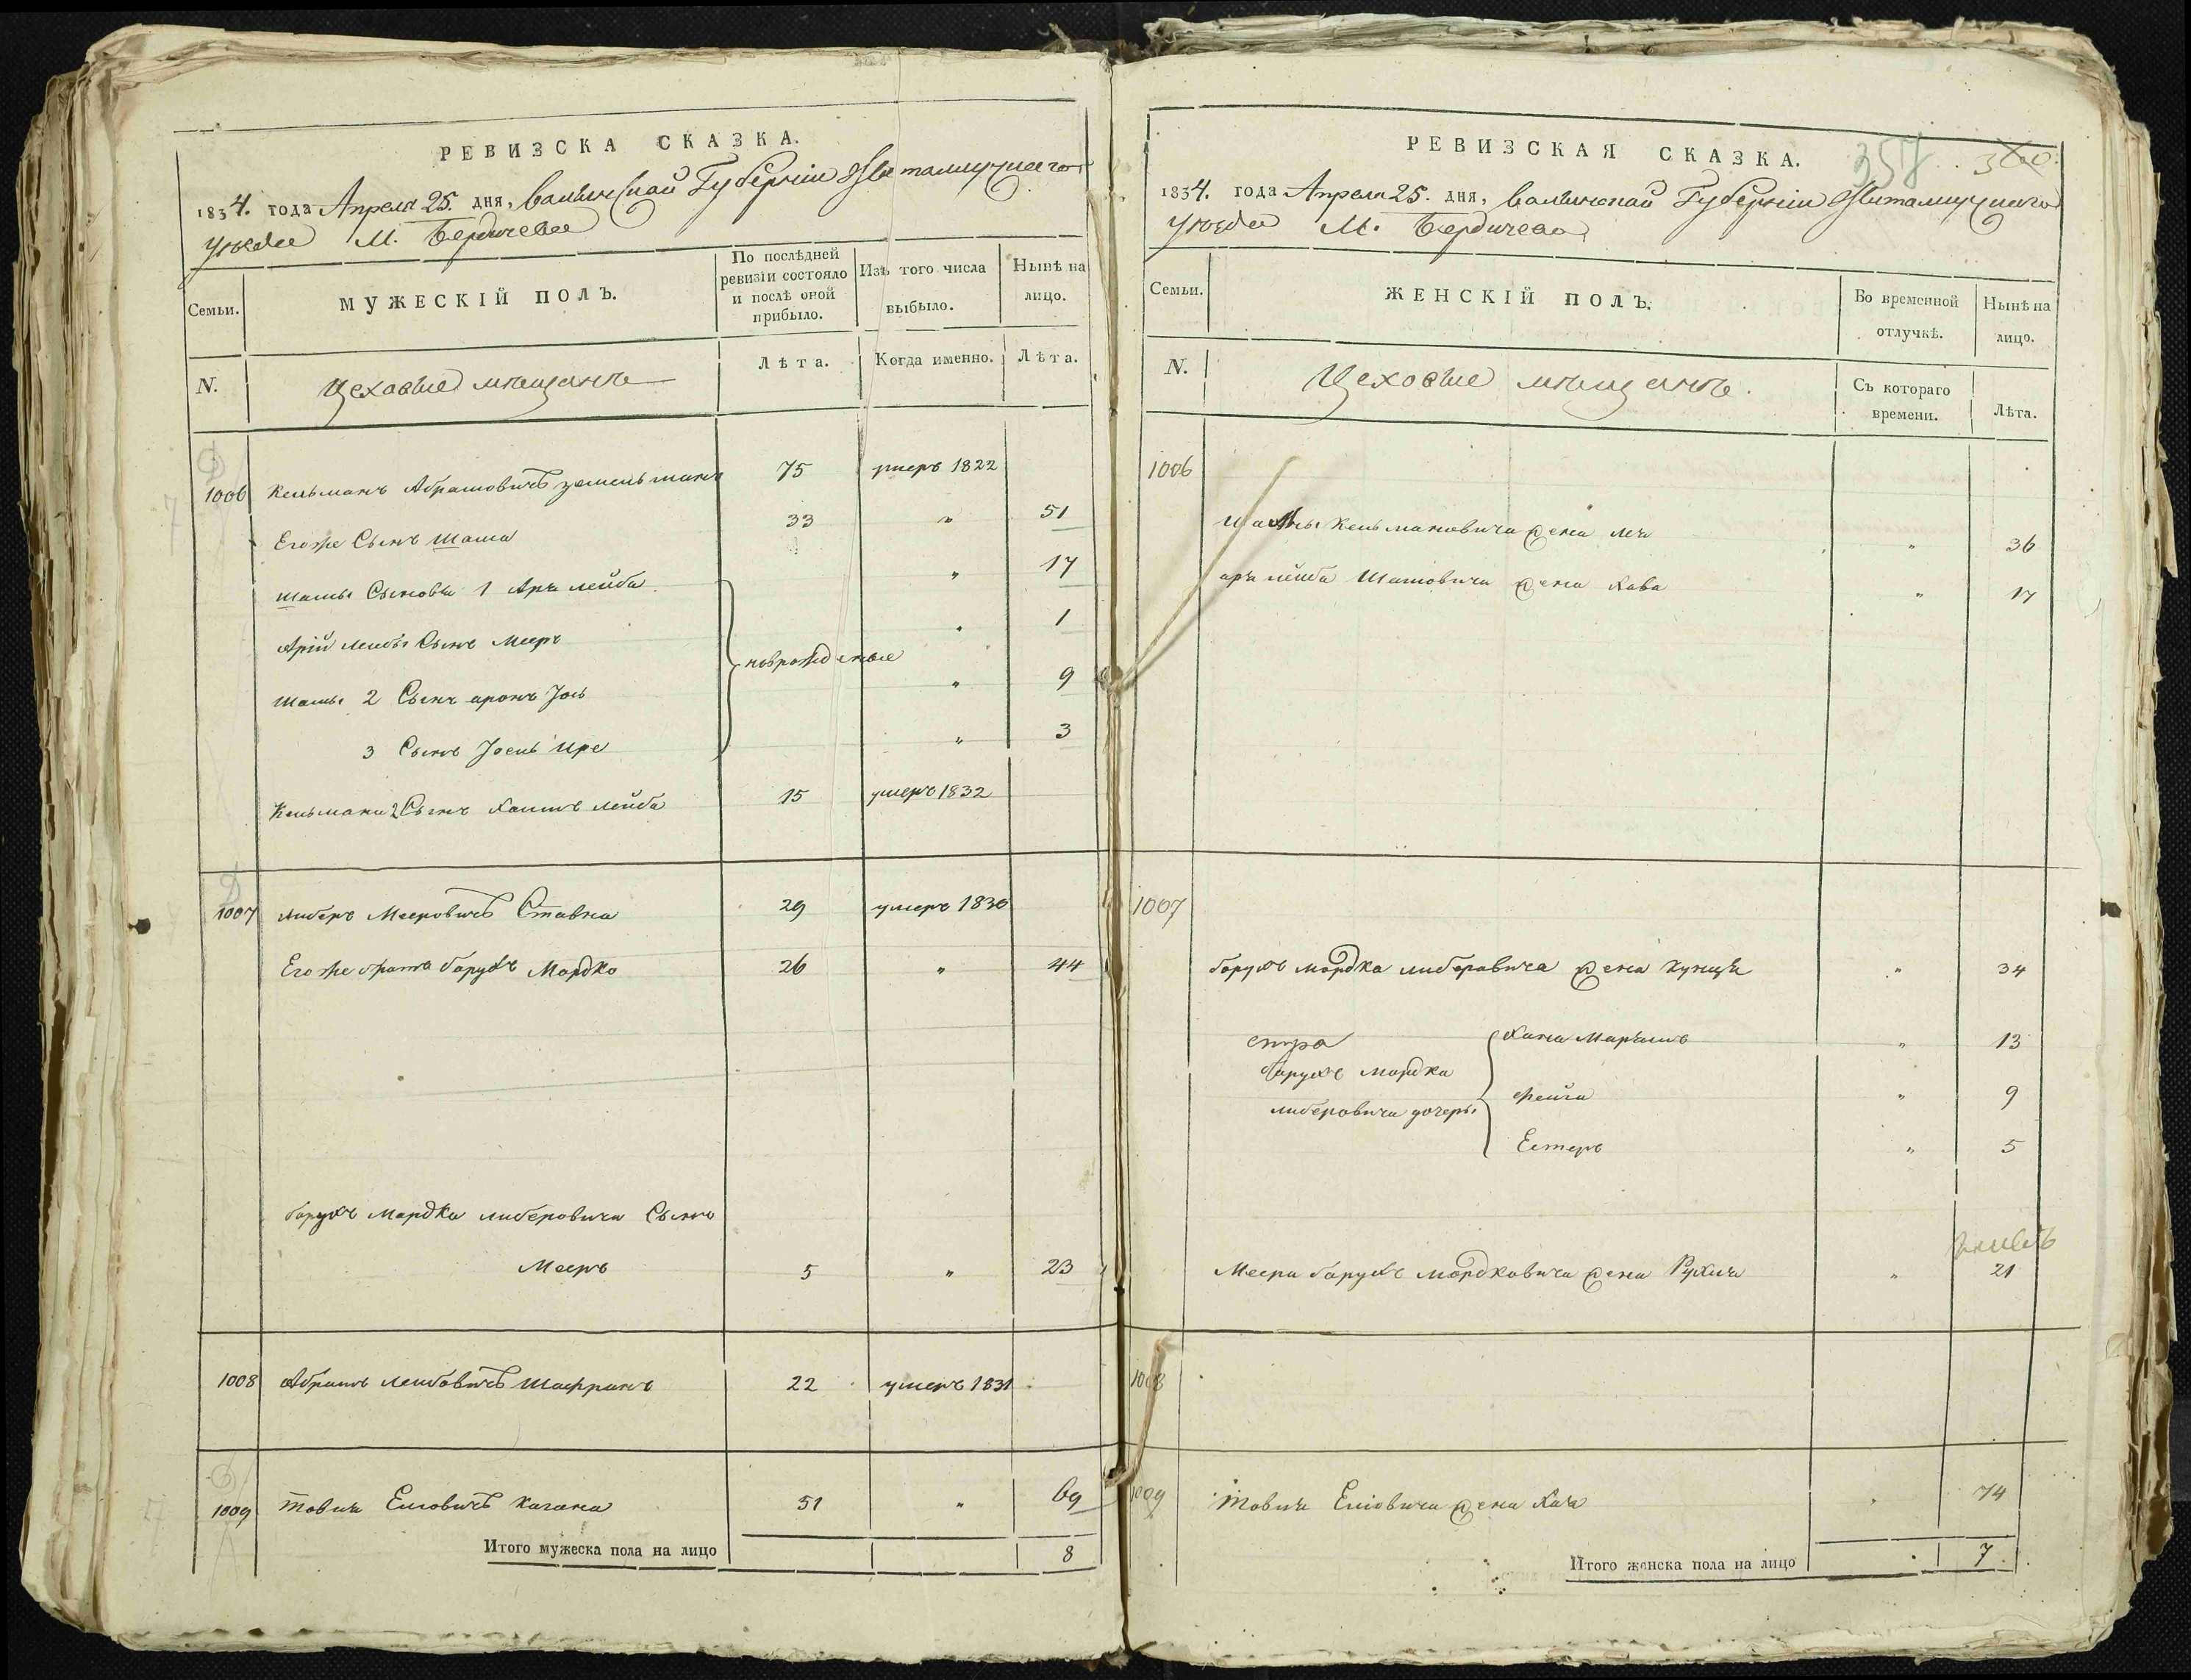 РЕВИЗСКА СКАЗКА.
1834. года Апреля 25. дня, Волынской Губерніи Житомирскаго
Уезда М. Бердичева
Семьи.
МУЖЕСКІЙ ПОЛЪ.
По послѣдней ревизіи состояло и послѣ оной прибыло.
Изъ того числа выбыло.
Нынѣ на лицо.
N.
Цеховые мещане
Лѣта.
Когда именно.
Лѣта.
1006 Кельманъ Абрамовичъ 75 умеръ 1822
Егоже Сынъ Шама 33 " 51
Шамы Сыновья 1 Арія лейба " 17
Арій лейбы Сынъ Мееръ " 1
новрожденые
Шамы 2 Сынъ аронъ Іось " 9
3 Сынъ " 3
Кельмана 2 Сынъ Хаимъ лейба 15 умеръ 1832
1007 Либеръ Мееровичъ Ставка 29 умеръ 1830
Егоже братъ борухъ Мордко 26 " 44
борухъ Мордка либеровича Сынъ
Мееръ 5 " 23
1008 Абрамъ лейбовичъ Шафранъ 22 умеръ 1831
1009 товия Еліовичъ кагана 51 " 69
Итого мужеска пола на лицо 8
РЕВИЗСКАЯ СКАЗКА.
358 360
1834. года Апреля 25. дня, Волынской Губерніи Житомирскаго
Уезда М. Бердичева
Семьи.
ЖЕНСКІЙ ПОЛЪ.
Во временной отлучкѣ.
Нынѣ на лицо.
N.
Цеховые мещане.
Съ котораго времени.
Лѣта.
1006
Шамы Кельмановича жена лея " 36
арія лейба Шамовича жена Хава " 17
1007
борухъ мордка либеровича жена " 34
Хана Маріямъ " 13
борухъ мордка
либеровича дочеры
фейга " 9
Естеръ " 5
Меера борухъ мордковича жена Рухля " 21
1008
1009 товия Еліовича жена Хая " 74
Итого женска пола на лицо 7